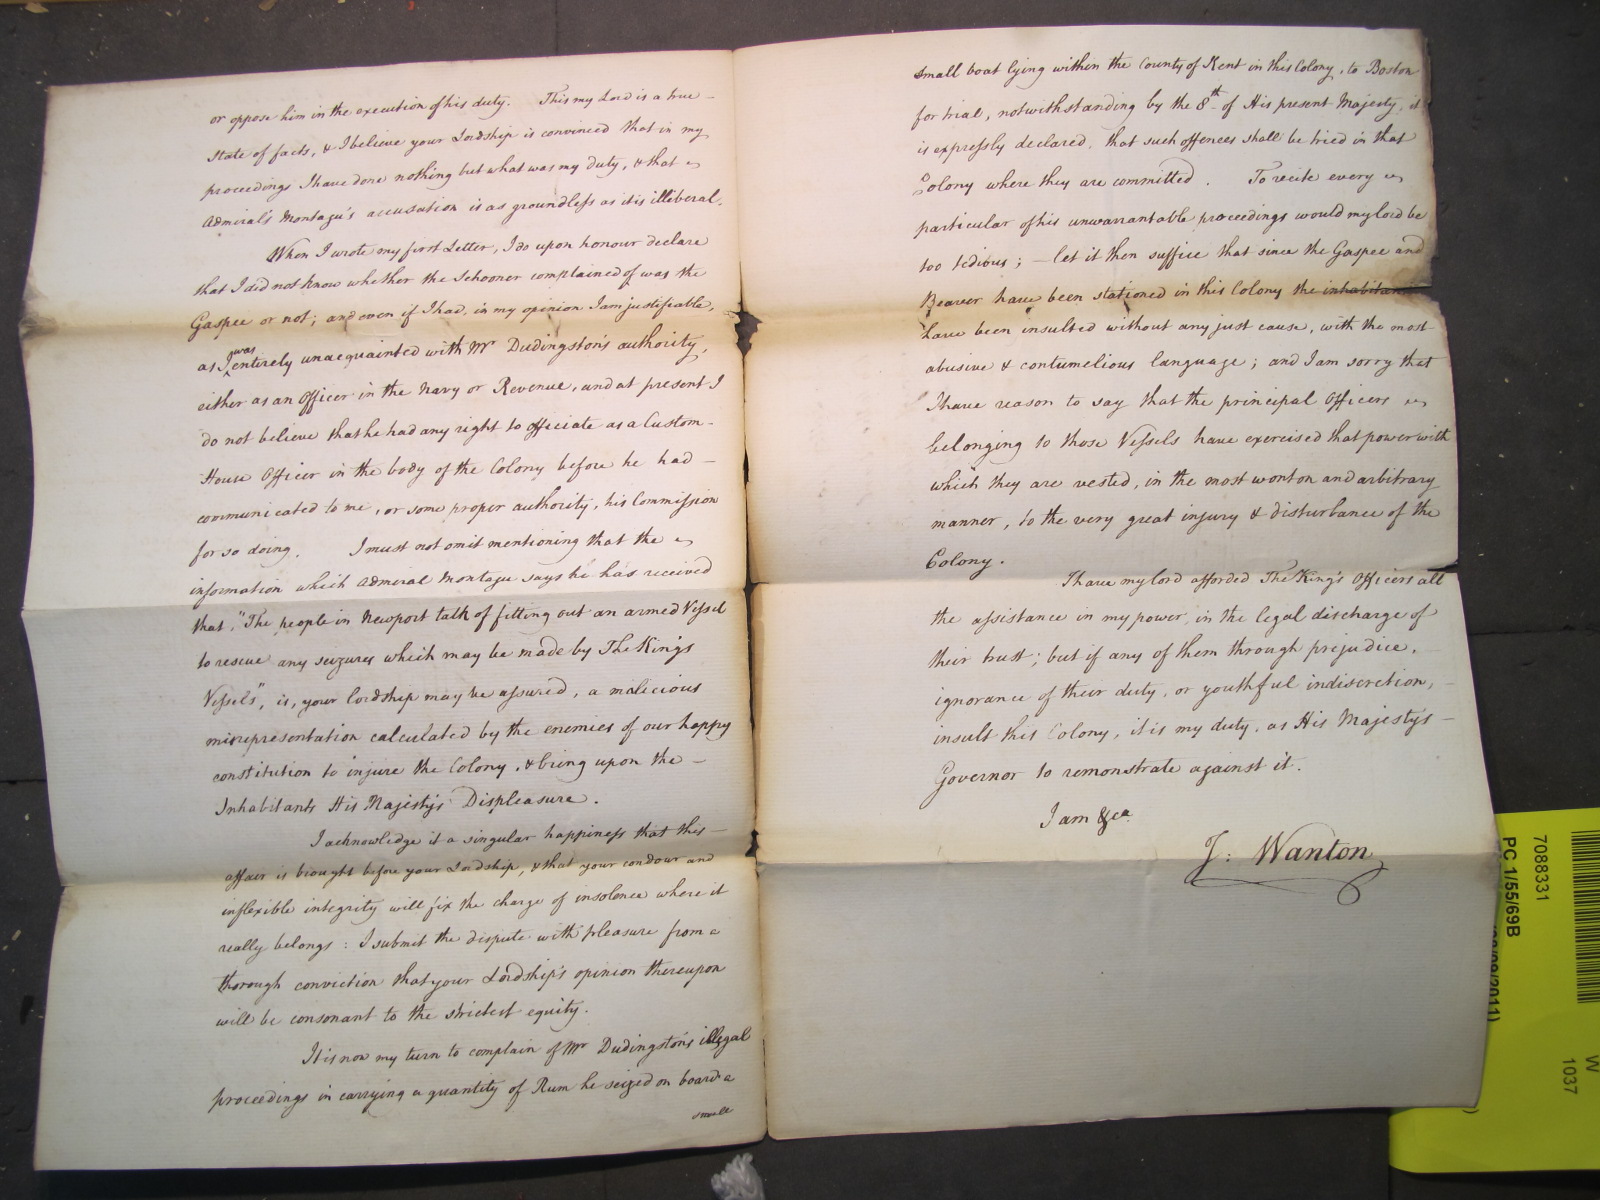 or oppose him in the execution of his duty. This my Lord is a true —
State of facts, & I believe your Lordship is convinced that in my
proceedings I have done nothing but what was my duty, & that
Admiral's Montagu's accusation is as groundless as it is illiberal.
When I wrote my first Letter, I do upon honour declare
that I did not know whether the Schooner complained of was the
Gaspee or not; and even if I had, in my opinion I am justifiable,
as I was entirely unacquainted with Mr Dudingston's authority,
either as an Officer in the Navy or Revenue, and at present I
do not believe that he had any right to officiate as a Custom-
House Officer in the body of the Colony before he had —
communicated to me, or some proper authority, his Commission
for so doing. I must not omit mentioning that the
information which Admiral Montagu says he has received
that, "The people in Newport talk of fitting out an armed Vessel
to rescue any seizures which may be made by The King's
Vessels", is, your lordship may be assured, a malicious
misrepresentation calculated by the enemies of our happy
constitution to injure the Colony, & bring upon the —
Inhabitants His Majesty's Displeasure.
I acknowledge it a singular happiness that this —
affair is brought before your Lordship, & that your candour and
inflexible integrity will fix the charge of insolence where it
really belongs: I submit the dispute with pleasure from a
thorough conviction that your Lordship's opinion thereupon
will be consonant to the strictest equity.
It is now my turn to complain of Mr Dudingston's illegal
proceedings in carrying a quantity of Rum he seized on board a
small
small boat lying within the County of Kent in this Colony, to Boston
for trial, notwithstanding by the 8th of His present Majesty, it
is expressly declared, that such offences shall be tried in that
Colony where they are committed. To recite every
particular of his unwarrantable proceedings would my lord be
too tedious; — let it then suffice that since the Gaspee and
Beaver have been stationed in this Colony the inhabitants
have been insulted without any just cause, with the most
abusive & contumelious language; and I am sorry that
I have reason to say that the principal Officers
belonging to those Vessels have exercised that power with
which they are vested, in the most wonton and arbitrary
manner, to the very great injury & disturbance of the
Colony.
I have my lord afforded The King's Officers all
the assistance in my power, in the legal discharge of
their trust; but if any of them through prejudice,
ignorance of their duty, or youthful indiscretion,
insult this Colony, it is my duty, as His Majesty's —
Governor to remonstrate against it.
I am &ca
J: Wanton
7088331
PC 1/55/69B
W
1037